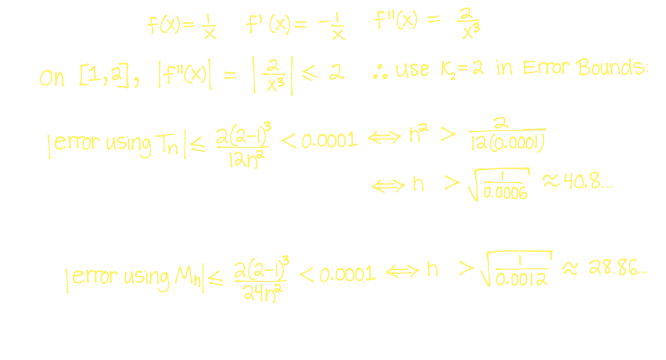 f(x) = 1/x f'(x) = -1/x f''(x) = 2/x³
On [1,2], |f''(x)| = |2/x³| ≤ 2 ∴ use K₂=2 in Error Bounds:
|error using Tn| ≤ 2(2-1)³/12n² < 0.0001 ⟺ n² > 2/12(0.0001)
⟺ n > √(1/0.0006) ≈ 40.8...
|error using Mn| ≤ 2(2-1)³/24n² < 0.0001 ⟺ n > √(1/0.0012) ≈ 28.86..